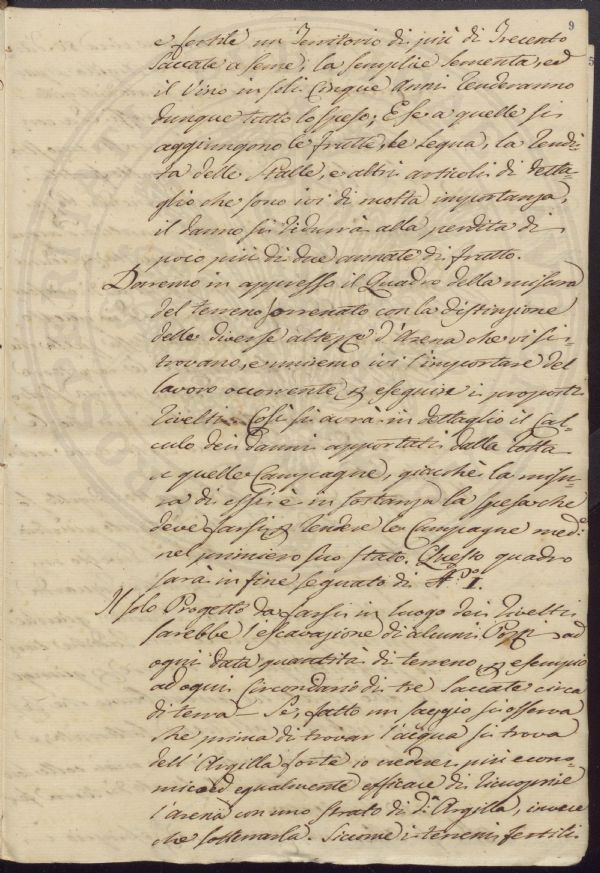 9
e fertile un Territorio di più di Trecento
Saccate a seme; la semplice sementa, ed
il vino in soli Cinque Anni renderanno
dunque tutto lo speso; E se a quelle si
aggiungono le frutte, le legna, la rendi-
ta delle Stalle, e altri articoli di detta-
glio che sono ivi di molta importanza,
il danno si ridurrà alla perdita di
poco più di due annate di frutto.
Daremo in appresso il Quadro della misura
del terreno arrenato con la distinzione
delle diverse altezze d'Arena che vi si ri-
trovano, e uniremo ivi l'importare del
lavoro occorrente eseguire i proposti
Divelti. Così si avrà in dettaglio il Cal-
culo dei danni apportati dalla rotta
a quelle Campagne, giacchè la misu-
ra di essi è in sostanza la spesa che
deve farsi rendere le Campagne med.
nel primiero suo stato. Questo quadro
sarà in fine segnato di N.º I.
Il solo Progetto da farsi in luogo dei Divelti
sarebbe l'escavazione di alcuni Pozzi ad
ogni data quantità di terreno, esempio
ad ogni Circondario di tre Saccate circa
di terra. Se, fatto un saggio si osserva
che prima di trovar l'acqua si trova
dell'Argilla forte io crederei più econo-
mico ed egualmente efficace di ricuoprire
l'arena con uno strato di d. Argilla, invece
che sotterrarla. Siccome i terreni fertili